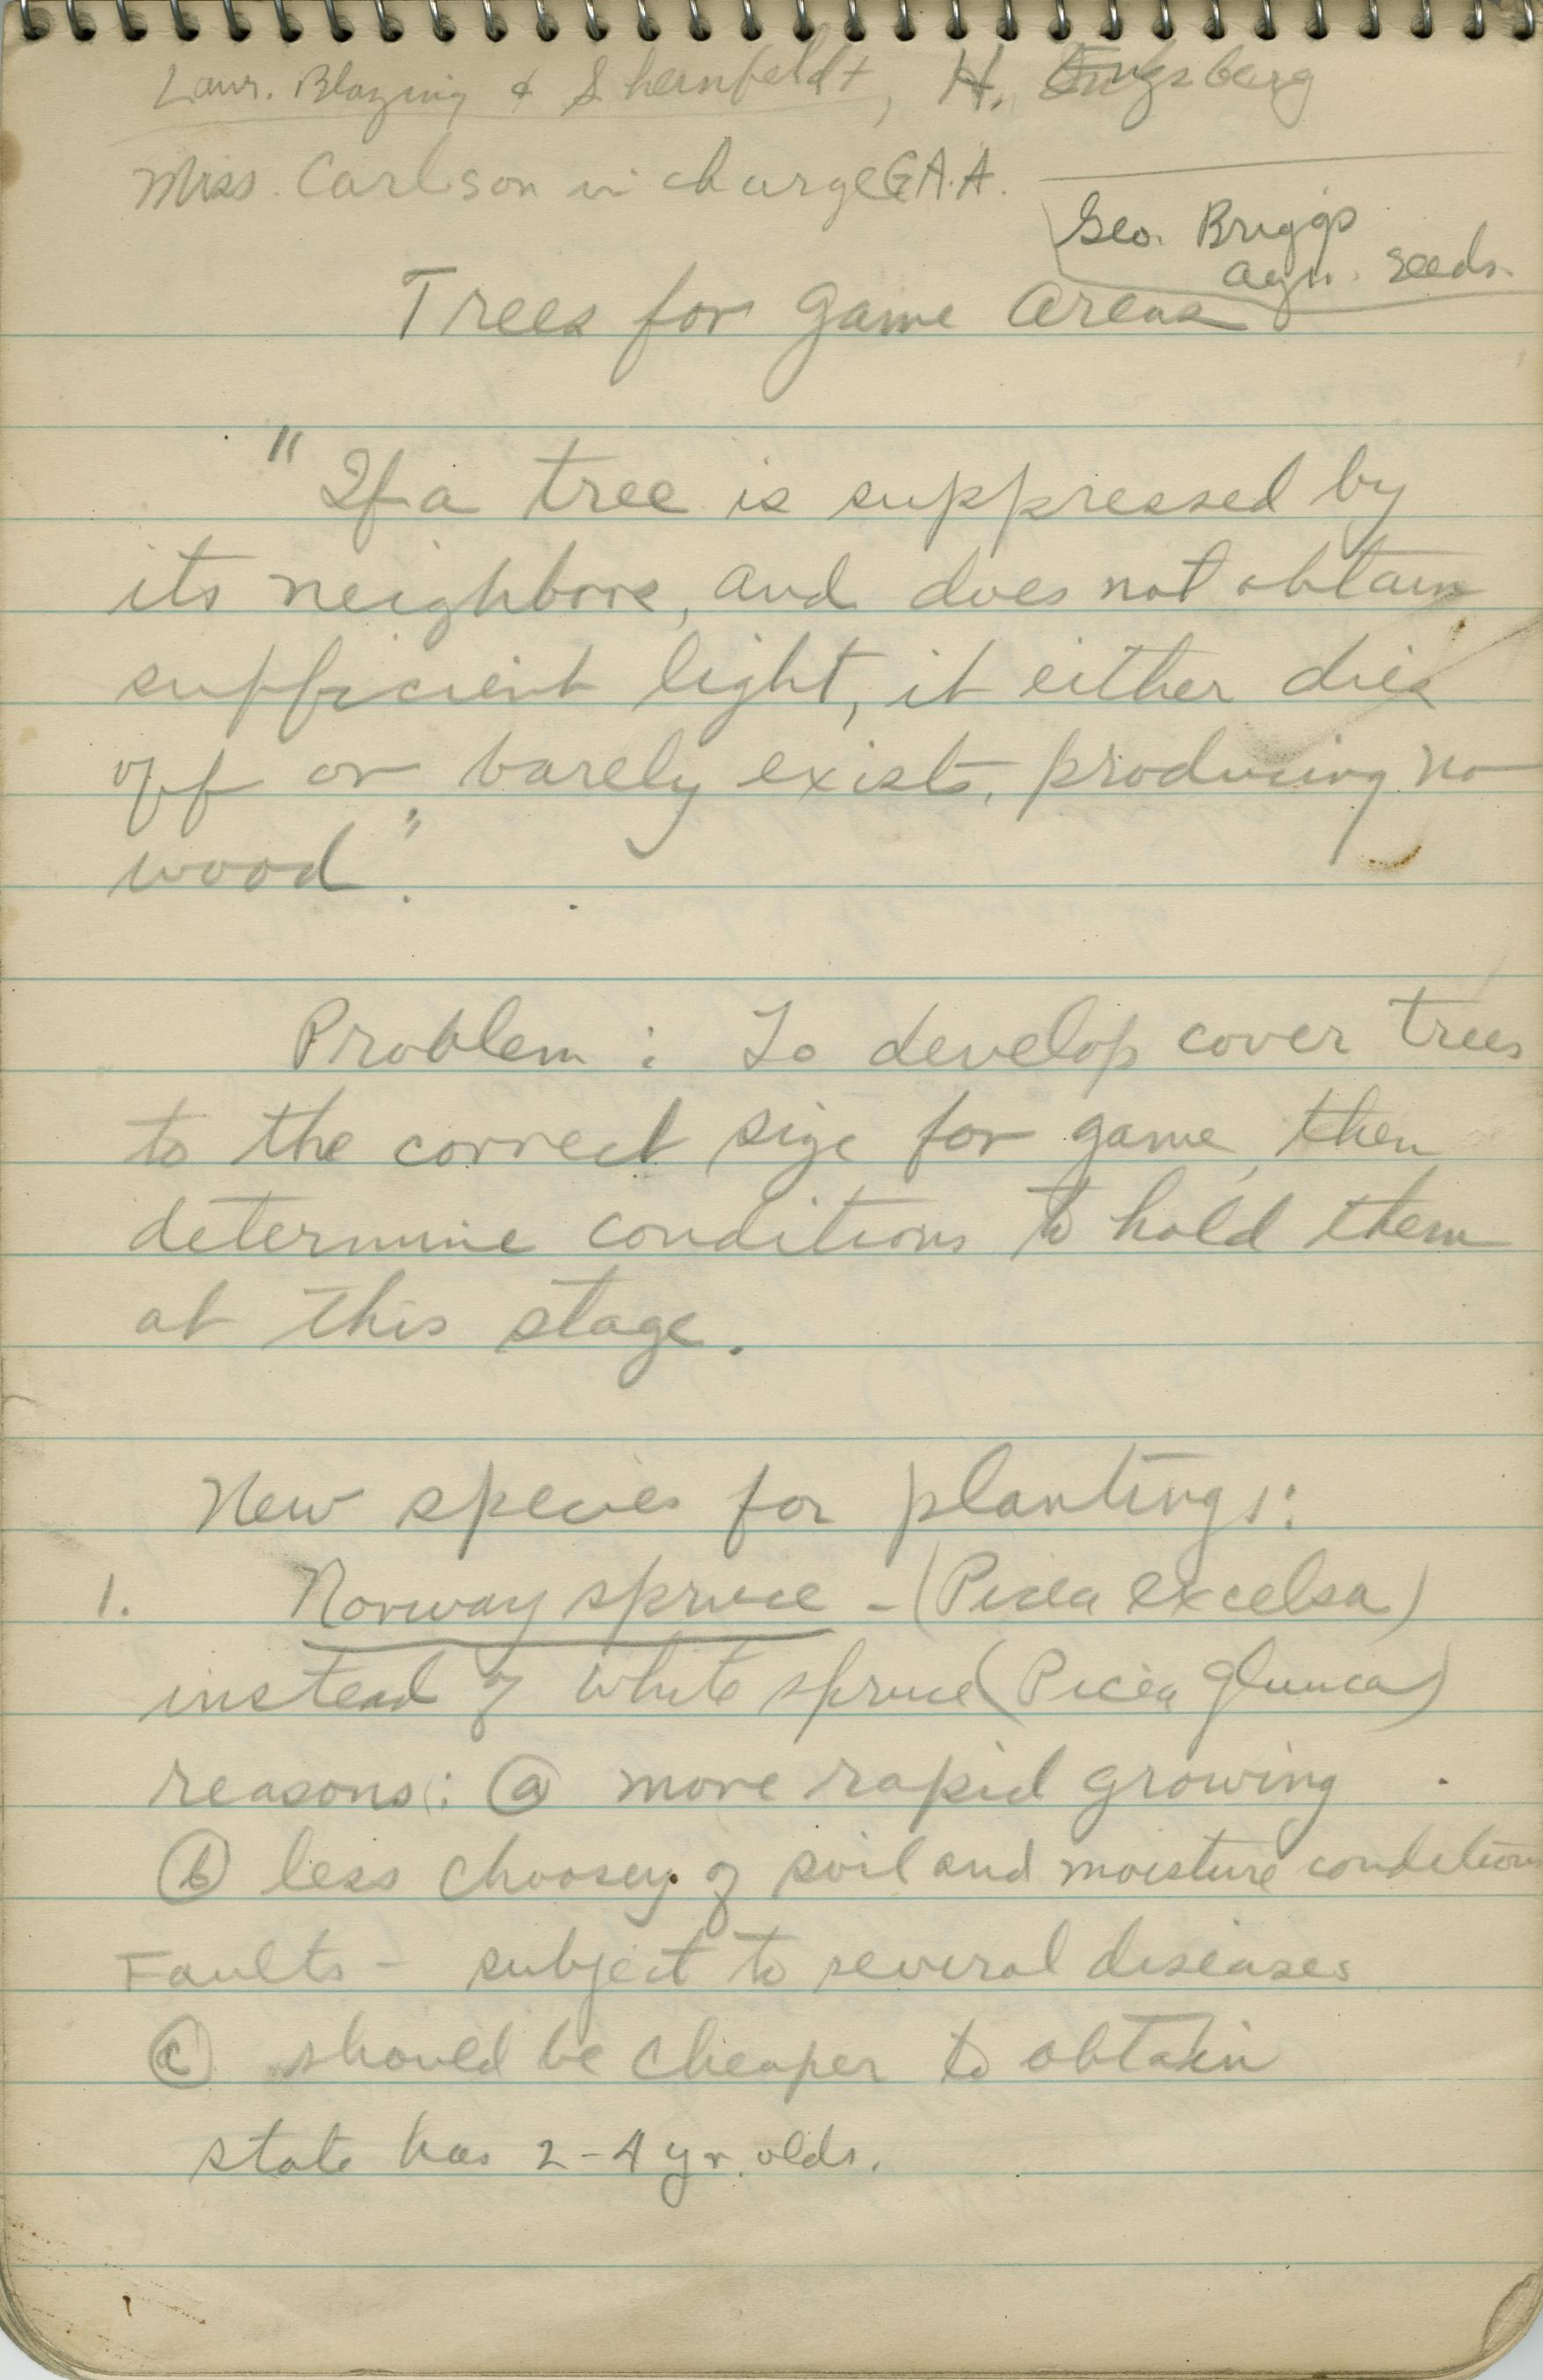 Lawr. Blazing & Shernfeldt, H.
Miss. Carlson in charge G.A.A.
Geo. Briggs
agr. seeds.
Trees for game areas
"If a tree is suppressed by
its neighbors, and does not obtain
sufficient light, it either dies
off or barely exists, producing no
wood".
Problem : To develop cover trees
to the correct size for game, then
determine conditions to hold them
at this stage.
New species for plantings:
1. Norway spruce - (Picea excelsa)
instead of white spruce (Picea glauca)
reasons: (a) more rapid growing
(b) less choosey of soil and moisture conditions
Faults - subject to several diseases
(c) should be cheaper to obtain
state has 2-4 yr. olds.